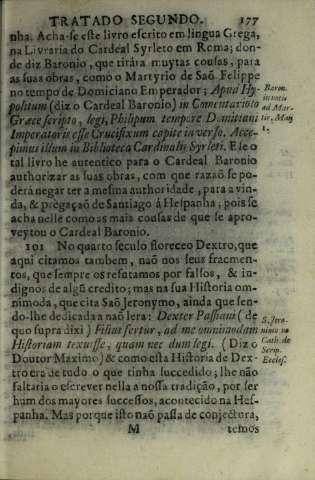 TRATADO SEGUNDO. 177
nha. Acha-se este livro escrito em lingua Grega,
na Livraria do Cardeal Syrleto em Roma; don-
de diz Baronio, que tirára muytas cousas, para
as suas obras, como o Martyrio de Saõ Felippe
no tempo de Domiciano Emperador; Apud Hy-
politum (diz o Cardeal Baronio) in Comentarioto
Græce scripto, legi, Philipum tempore Domitiani
Imperatoris esse Crucifixum capite inverso. Acce-
pimus illum in Biblioteca Cardinalis Syrleti. E se o
tal livro he autentico para o Cardeal Baronio
authorizar as suas obras, com que razaõ se po-
derá negar ter a mesma authoridade, para a vin-
da, & pregaçaõ de Santiago á Hespanha; pois se
acha nelle como as mais cousas de que se apro-
veytou o Cardeal Baronio.
Baron.
in notis
ad Mar-
tir, Maij
1.
101 No quarto seculo floreceo Dextro, que
aqui citamos tambem, naõ nos seus fragmen-
tos, que sempre os refutamos por falsos, & in-
dignos de algũ credito; mas na sua Historia om-
nimoda, que cita Saõ Jeronymo, ainda que sen-
do-lhe dedicada a naõ lera: Dexter Passiani (de
quo supra dixi) Filius fertur, ad me omnimodam
Historiam texuisse, quam nec dum legi. (Diz o
Doutor Maximo) & como esta Historia de Dex-
tro era de tudo o que tinha succedido; lhe não
faltaria o escrever nella a nossa tradição, por ser
hum dos mayores successos, acontecido na Hes-
panha. Mas porque isto naõ passa de conjectura,
S. Jero-
nimo no
Cath. de
Scrip.
Eccles.
M temos